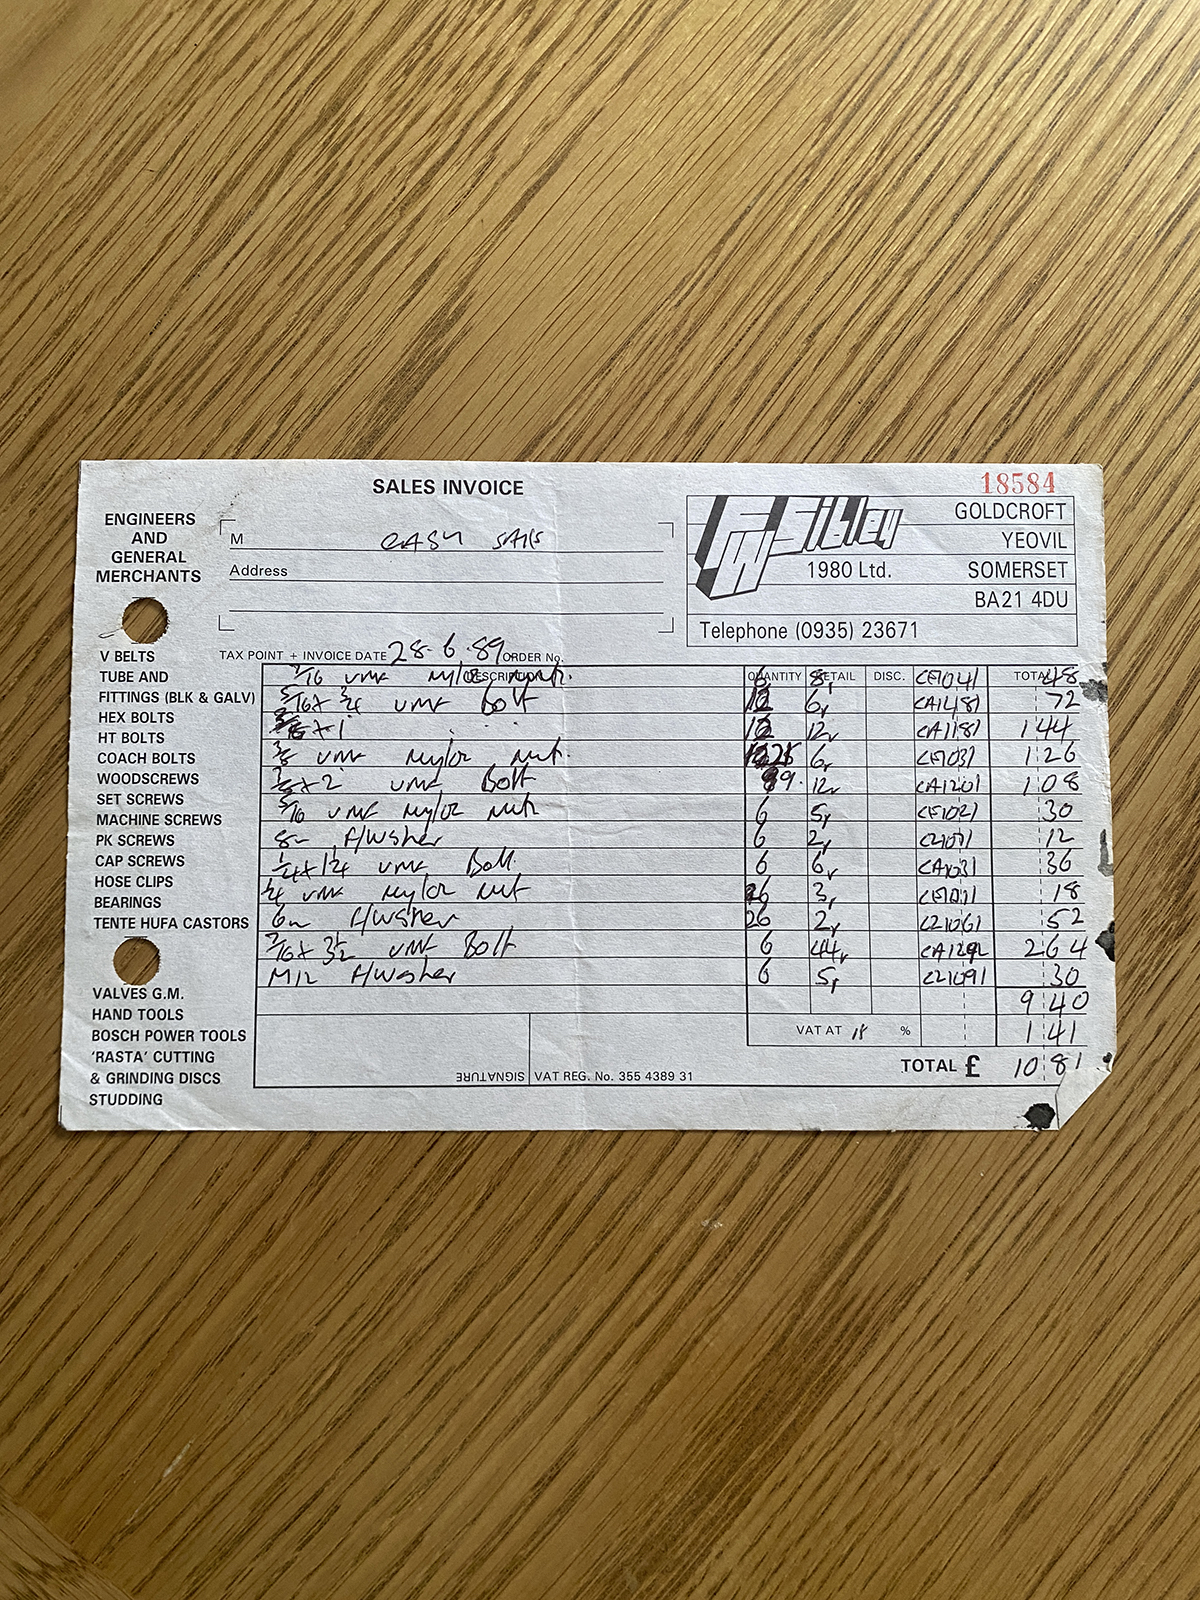 SALES INVOICE
18584
ENGINEERS
AND
GENERAL
MERCHANTS
M CASH
Address
FW Sibley
1980 Ltd.
GOLDCROFT
YEOVIL
SOMERSET
BA21 4DU
Telephone (0935) 23671
TAX POINT + INVOICE DATE 28-6-89 ORDER No.
DESCRIPTION QUANTITY RETAIL DISC. TOTAL
7/16 UNF Nyloc Nut. 6 8 CE1041 48
5/16 x 3/4 UNF Bolt 12 6 CA1481 72
3/8 x 1 12 12 CA1181 144
3/8 UNF Nyloc Nut. 6 CE1031 1 26
x 2 UNF Bolt 9. 12 CA1201 1 08
5/16 UNF Nylor Nut 6 5 CE1021 30
8m F/Wsher 6 2 12
1/4 x 1 1/4 UNF Bolt 6 6 CA1031 36
1/4 UNF Nylor Nut 6 3 CE1011 18
6m F/Wsher 26 2 CZ1061 52
7/16 x 3 1/2 UNF Bolt 6 44 264
M12 F/Washer 6 5 CZ1091 30
9 40
VAT AT 15 % 1 41
TOTAL £ 10 81
SIGNATURE
VAT REG. No. 355 4389 31
V BELTS
TUBE AND
FITTINGS (BLK & GALV)
HEX BOLTS
HT BOLTS
COACH BOLTS
WOODSCREWS
SET SCREWS
MACHINE SCREWS
PK SCREWS
CAP SCREWS
HOSE CLIPS
BEARINGS
TENTE HUFA CASTORS
VALVES G.M.
HAND TOOLS
BOSCH POWER TOOLS
'RASTA' CUTTING
& GRINDING DISCS
STUDDING